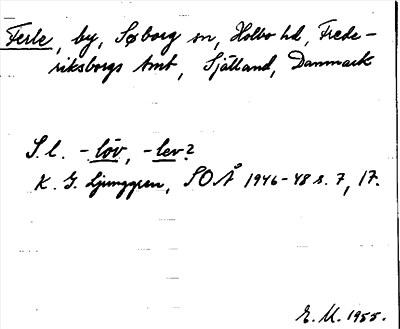 Ferle, by, Søborg sn, Holbo hd, Frede-
riksborgs Amt, Sjælland, Danmark
S. l. -löv, -lev?
K. G. Ljunggren, SOÅ 1946-48 s. 7, 17.
E. M. 1955.